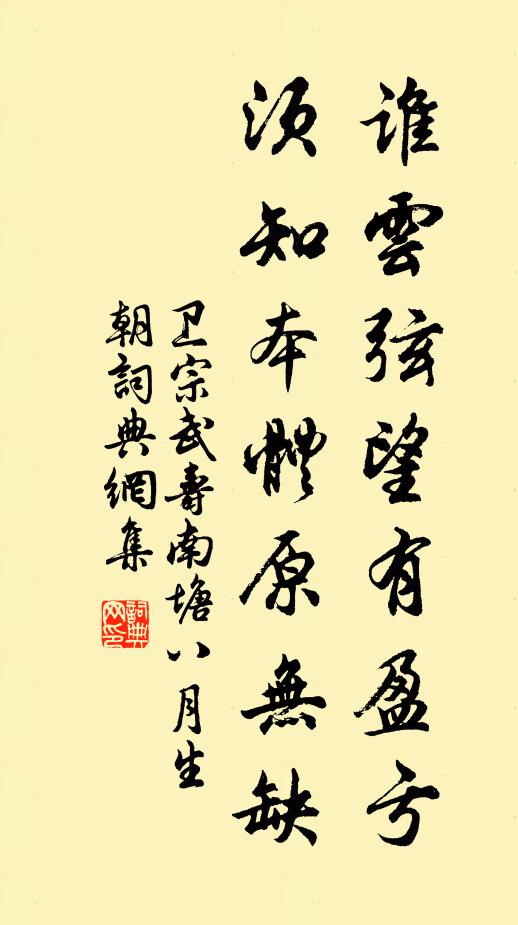 誰雲弦望有盈亏
須知本體原無缺
卫宗武壽南塘八月生
朝詞典網集
詞典网印